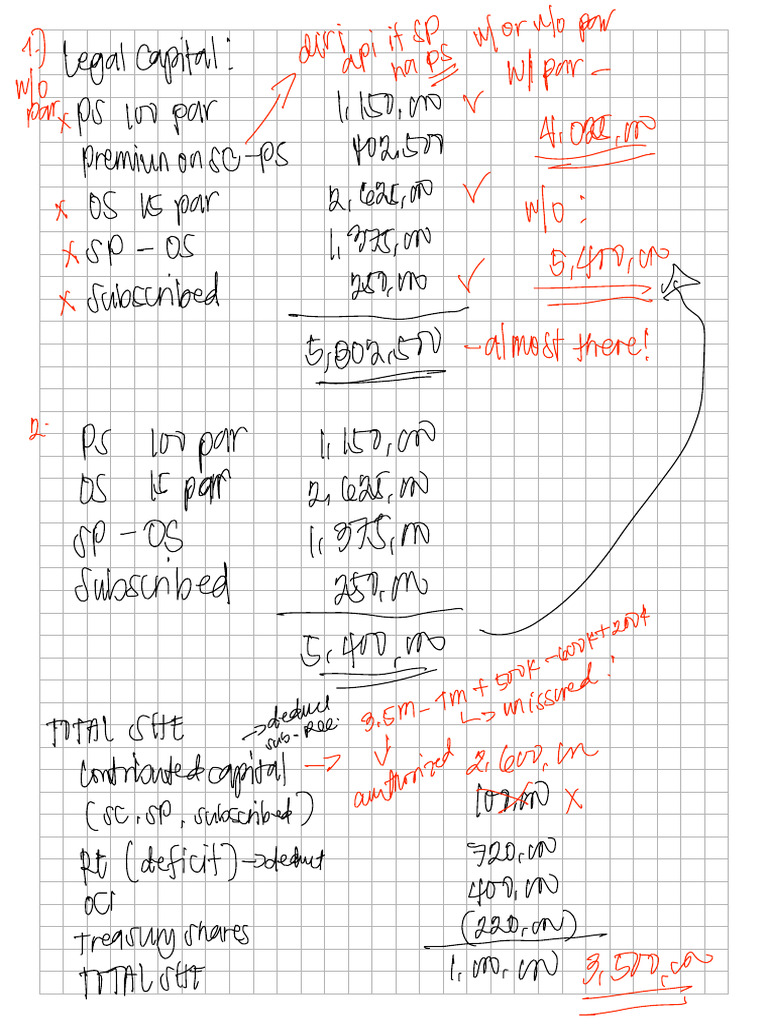 1.) Legal Capital:
diri api it SP ha PS
w/ or w/o par
w/ par -
w/o par
x PS 100 par 1,150,000 ✓
4,025,000
Premiun on SC-PS 402,500
x OS 15 par 2,625,000 ✓
w/o:
x SP - OS 1,375,000
5,400,000
x Subscribed 250,000 ✓
5,802,500 - almost there!
2. PS 100 par 1,150,000
OS 15 par 2,625,000
SP - OS 1,375,000
Subscribed 250,000
5,400,000
3.5M - 1M + 500K - 600K + 200K
↳ unissured!
TOTAL SHE → deduct sub-Rec.
Contributed capital → authorized 2,600,000
(SC, SP, subscribed) 100,000 x
RE (deficit) → deduct 720,000
OCI 400,000
Treasury shares (220,000)
TOTAL SHE 1,000,000 3,500,000